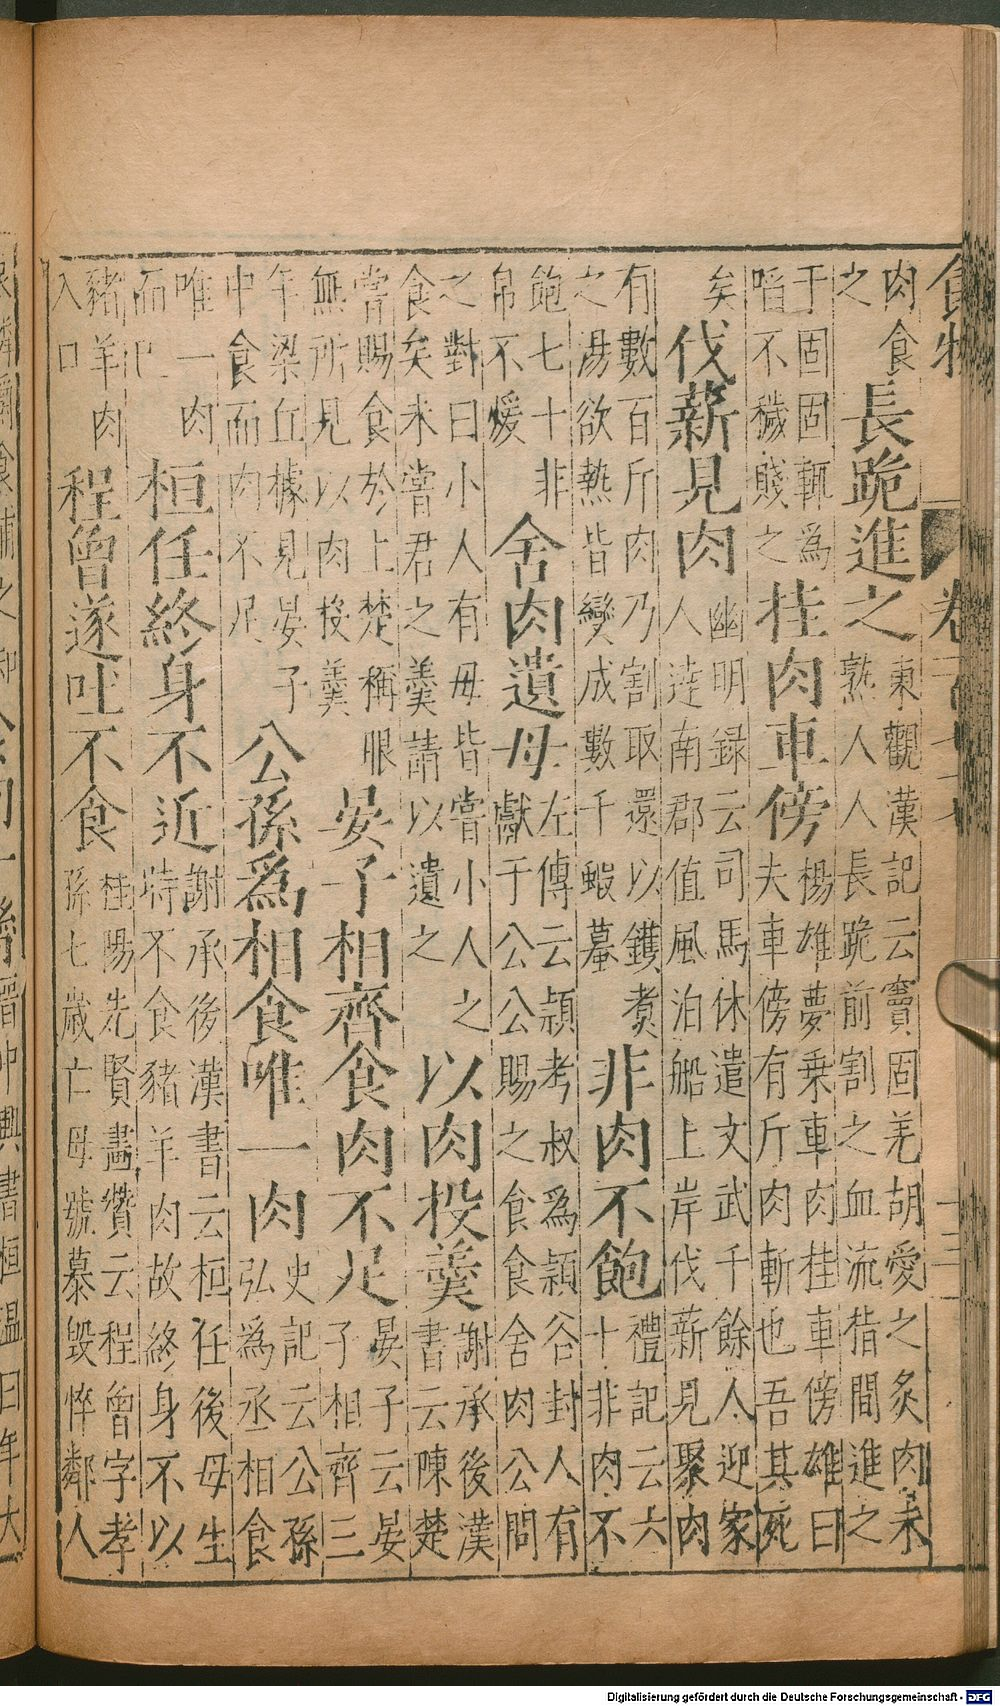 食物
十三
肉食
之
長跪進之
東觀漢記云竇固羌胡愛之炙肉未
熟人人長跪前割之血流指間進之
于固固輒為
㗖不穢賤之
桂肉車傍
楊雄夢乗車肉桂車傍雄曰
夫車傍有斤肉斬也吾其死
矣
伐薪見肉
幽明録云司馬休遣文武千餘人迎家
人逹南郡值風泊船上岸伐薪見聚肉
有數百斤肉乃割取還以鑊煑
之湯欲熱皆變成數千蝦蟇
非肉不飽
禮記云六
十非肉不
飽七十非
帛不煖
舍肉遺母
左傳云頴考叔為頴谷封人有
獻于公公賜之食食舍肉公問
之對曰小人有母皆嘗小人之
食矣未嘗君之羹請以遺之
以肉投羹
謝承後漢
書云陳楚
嘗賜食於上楚稱眼
無所見以肉投羹
晏子相齊食肉不足
晏子云晏
子相齊三
年梁丘據見晏子
中食而肉不足
公孫爲相食唯一肉
史記云公孫
弘為丞相食
唯一肉
而已
桓任終身不近
謝承後漢書云桓任後母生
特不食豬羊肉故終身不以
豬羊肉
入口
程曾遂吐不食
桂陽先賢畫讚云程曾字孝
孫七歲亡母號慕毀悴鄰人
Digitalisierung gefördert durch die Deutsche Forschungsgemeinschaft - DFG